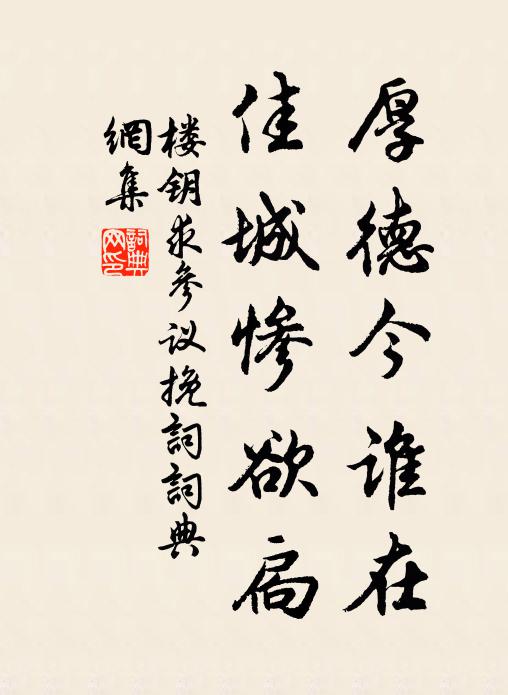 厚德今谁在
佳城惨欲扃
楼钥求参议挽詞詞典
網集
詞典
网印